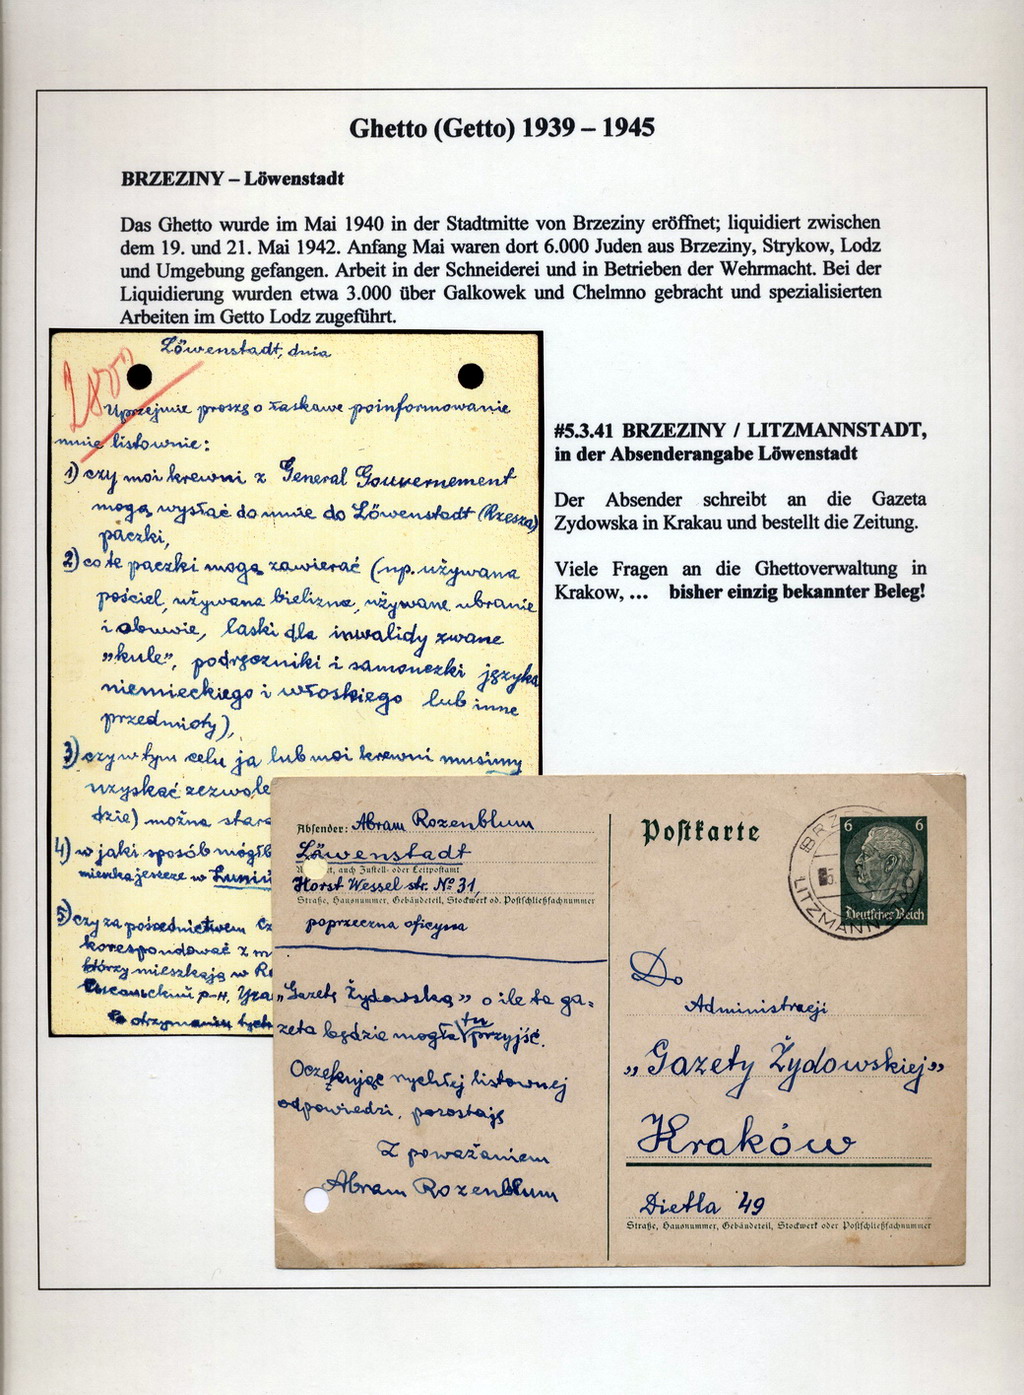 Ghetto (Getto) 1939 – 1945
BRZEZINY – Löwenstadt
Das Ghetto wurde im Mai 1940 in der Stadtmitte von Brzeziny eröffnet; liquidiert zwischen
dem 19. und 21. Mai 1942. Anfang Mai waren dort 6.000 Juden aus Brzeziny, Strykow, Lodz
und Umgebung gefangen. Arbeit in der Schneiderei und in Betrieben der Wehrmacht. Bei der
Liquidierung wurden etwa 3.000 über Galkowek und Chelmno gebracht und spezialisierten
Arbeiten im Getto Lodz zugeführt.
Löwenstadt, dnia
Uprzejmie proszę o łaskawe poinformowanie
mnie listownie:
1) czy moi krewni z General Gouvernement
mogą wysłać do mnie do Löwenstadt (Rzesza)
paczki,
2) co te paczki mogą zawierać (np. używana
pościel, używana bielizna, używane ubranie
i obuwie, laski dla inwalidy zwane
"kule", podręczniki i samouczki języka
niemieckiego i włoskiego lub inne
przedmioty),
3) czy w tym celu ja lub moi krewni musimy
uzyskać zezwole
dzie) można stara
4) w jaki sposób mógłb
mieszka jeszcze w
5) czy za pośrednictwem
korespondować z
którzy mieszkają w
po otrzymaniu tych
#5.3.41 BRZEZINY / LITZMANNSTADT,
in der Absenderangabe Löwenstadt
Der Absender schreibt an die Gazeta
Zydowska in Krakau und bestellt die Zeitung.
Viele Fragen an die Ghettoverwaltung in
Krakow, ... bisher einzig bekannter Beleg!
Absender: Abram Rozenblum
Löwenstadt
auch Zustell- oder Leitpostamt
Horst Wessel str. № 31,
Straße, Hausnummer, Gebäudeteil, Stockwerk od. Postschließfachnummer
poprzeczna oficyna
"Gazetę Żydowską" o ile ta ga=
zeta będzie mogła tu przyjść.
Oczekując rychłej listownej
odpowiedzi, pozostaję
Z poważaniem
Abram Rozenblum
Postkarte
BRZE
LITZMANN
6 6
Deutsches Reich
Do
Administracji
"Gazety Żydowskiej"
Kraków
Dietla 49
Straße, Hausnummer, Gebäudeteil, Stockwerk oder Postschließfachnummer